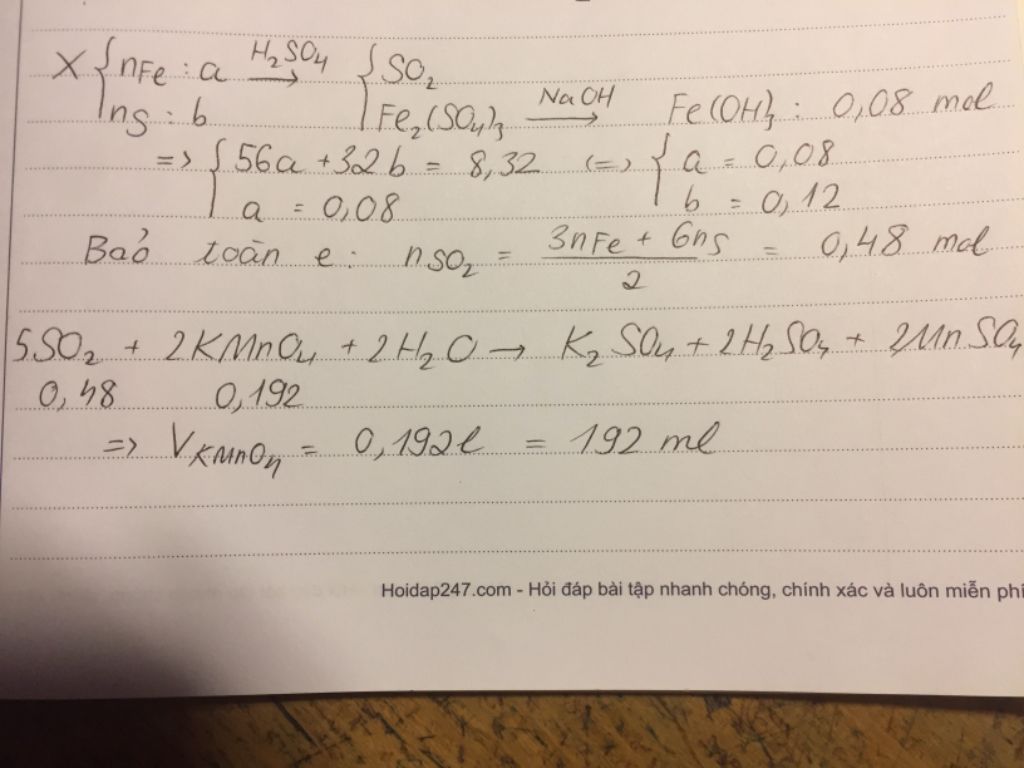 X { nFe : a H₂SO₄ → { SO₂
nS : b Fe₂(SO₄)₃ NaOH → Fe(OH)₃ : 0,08 mol
=> { 56a + 32b = 8,32 (=) { a = 0,08
a = 0,08 b = 0,12
Bảo toàn e: nSO₂ = (3nFe + 6nS)/2 = 0,48 mol
5SO₂ + 2KMnO₄ + 2H₂O → K₂SO₄ + 2H₂SO₄ + 2MnSO₄
0,48 0,192
=> VKMnO₄ = 0,192l = 192 ml
Hoidap247.com - Hỏi đáp bài tập nhanh chóng, chính xác và luôn miễn phí